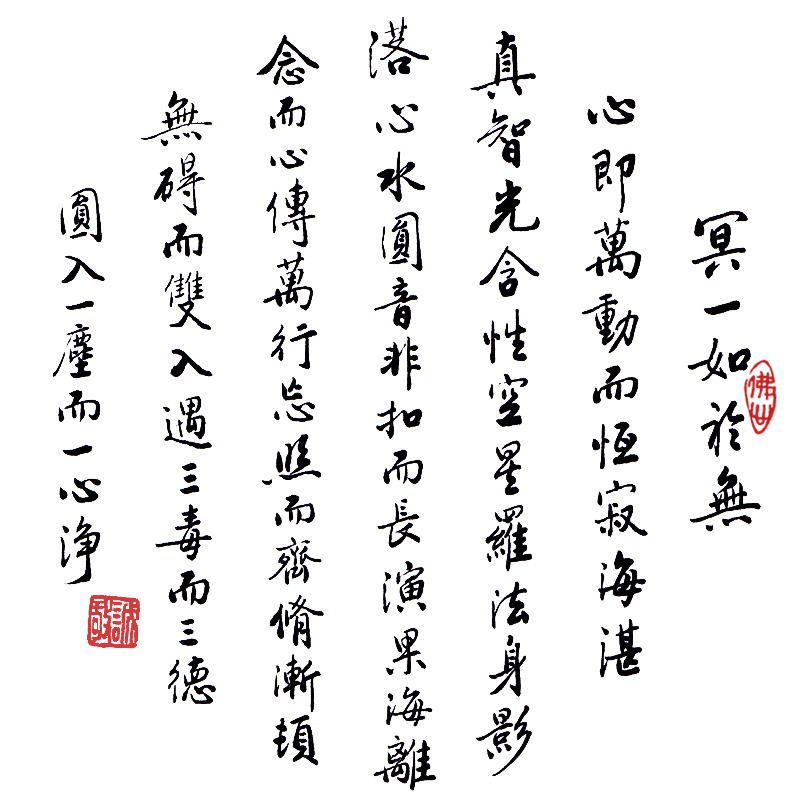 冥一如於無
心即萬動而恆寂海湛
真智光含性空星羅法身影
落心水圓音非扣而長演果海離
念而心傳萬行忘照而齊脩漸頓
無碍而雙入遇三毒而三德
圓入一塵而一心淨